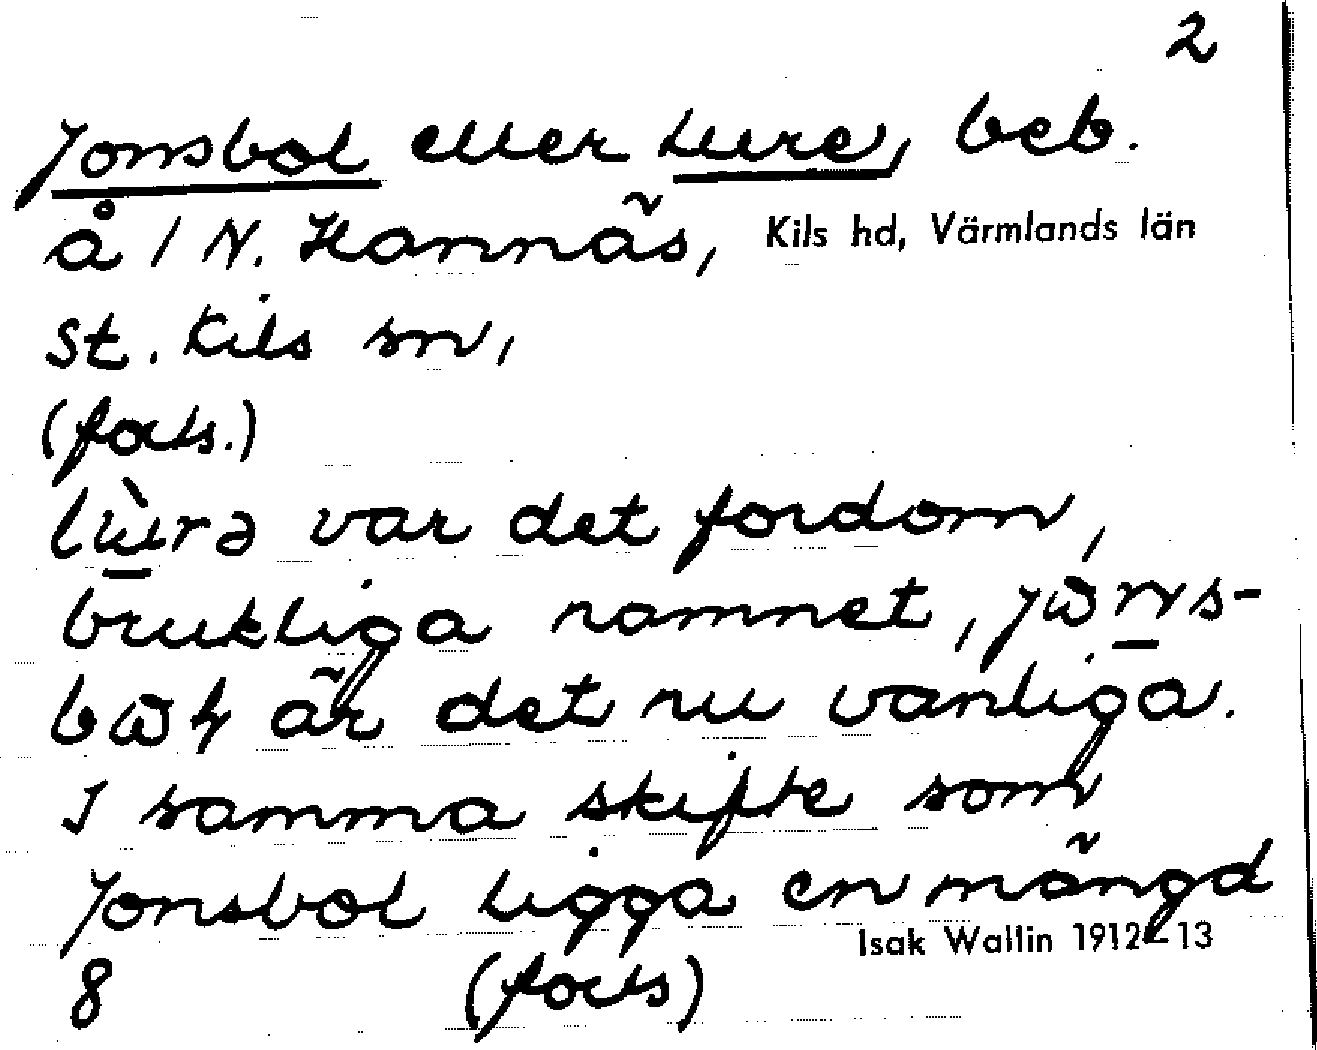 2
Jonsbol eller Lure, beb.
å 1 N. Hannäs, Kils hd, Värmlands län
St. Kils sn,
(forts.)
lùrə var det fordom,
brukliga namnet, jɷns-
bɷɫ är det nu vanliga.
I samma skifte som
Jonsbol ligga en mängd
Isak Wallin 1912–13
8 (forts)